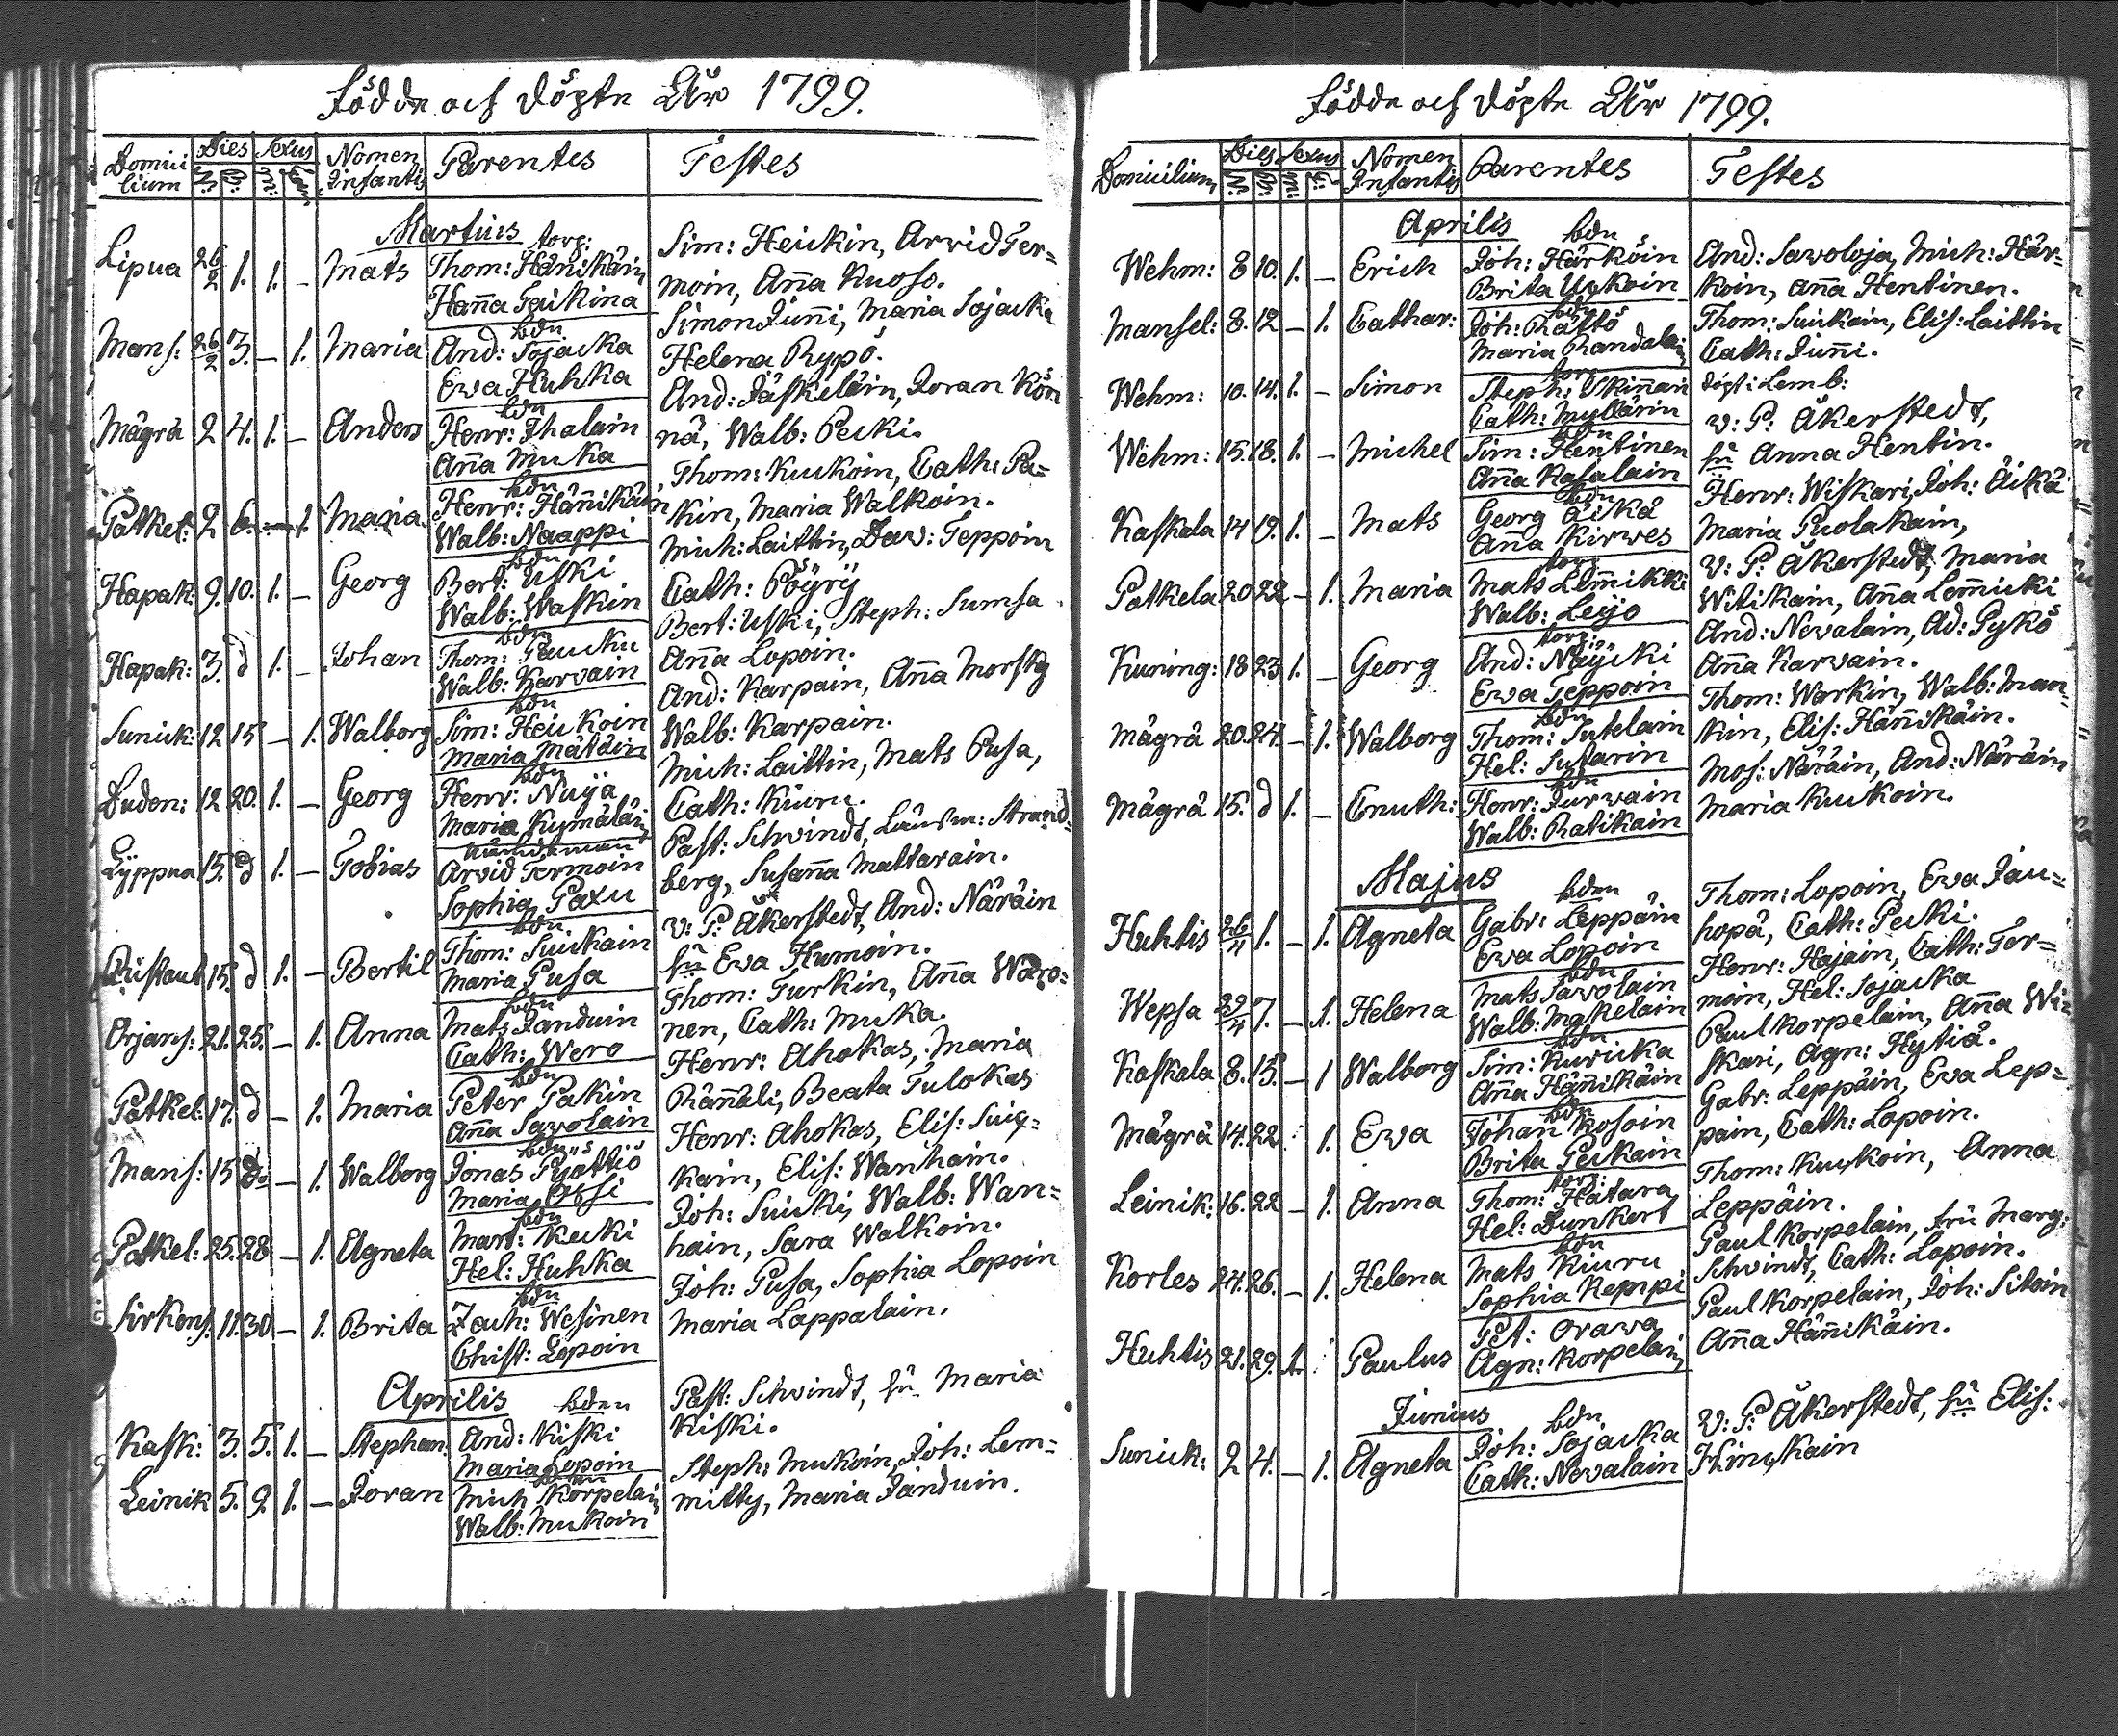 Födde och döpte Åhr 1799.
Domici
lium
Dies Sexus
N: B: m: fem
Nomen
Infantis
Parentes
Testes
Martius
Lipua 26/2 1. 1. _ Mats
torp:
Thom: Hänikäin
Hanna Teickina
Sim: Heickin, Arvid Ter=
moin, Anna Kuoso.
Mans: 26/2 3. _ 1. Maria
bdn
And: Sojacka
Ewa Huhka
Simon Junni, Maria Sojacka
Helena Rypö.
Mägrä 2 4. 1. _ Anders
bdn
Henr: Ihalain
Anna Muka
And: Jäskeläin, Joran Kön
nä, Walb: Pecki.
Patkel: 2 6. _ 1. Maria
bdn
Henr: Hännikäin
Walb: Naappi
Thom: Kuckoin, Cath: Pa=
kin, Maria Walkoin.
Hapak: 9. 10. 1. _ Georg
bdn
Bert: Uski
Walb: Waskin
Mich: Laittin, Dav: Teppoin
Cath: Pöyry
Hapak: 3. d 1. _ Johan
bdn
Thom: Paucku
Walb: Karvain
Bert: Uski, Steph: Sumsa
Anna Lopoin.
Sunick: 12 15 _ 1. Walborg
bdn
Sim: Heickoin
Maria Mätäin
And: Karpain, Anna Morsky
Walb: Karpain.
Duden: 12 20. 1. _ Georg
bdn
Henr: Nuijä
Maria Kymäläin
Mich: Laittin, Mats Pusa,
Cath: Kiuru.
Lyppua 15. d 1. _ Tobias
nämdeman
Arvid Termoin
Sophia Paxu
Past: Schvindt, Länsm: Strand=
berg, Susanna Mattarain.
Ristaut 15. d 1. _ Bertil
bdn
Thom: Suickain
Maria Pusa
v: P: Åkerstedt, And: Näräin
fru Eva Humoin.
Orjans: 21. 25. _ 1. Anna
bdn
Mats Janduin
Cath: Wero
Thom: Turkin, Anna Waro=
nen, Cath: Muka.
Patkel: 17. d _ 1. Maria
bdn
Peter Pakin
Anna Savolain
Henr: Ahokas, Maria
Rännäli, Beata Tulokas
Mans: 15 do _ 1. Walborg
bdn
Jonas Pyöttiö
Maria Ossi
Henr: Ahokas, Elis: Suic=
kain, Elis: Wanhain.
Patkel: 25. 28 _ 1. Agneta
bdn
Mart: Kecki
Hel: Huhka
Joh: Suicki, Walb: Wan=
hain, Sara Walkoin.
Sirkens: 11. 30 _ 1. Brita
bdn
Zach: Wesinen
Christ: Lopoin
Joh: Pusa, Sophia Lopoin
Maria Lappalain.
Aprilis
Kask: 3. 5. 1. _ Stephan
bden
And: Kiski
Maria Lopoin
Past: Schvindt, fru Maria
Kiski.
Leinik 5. 9. 1. _ Joran
bdn
Mich Korpelain
Walb: Mukoin
Steph: Mukoin, Joh: Lem=
mitty, Maria Janduin.
Födde och döpte Åhr 1799.
Domicilium
Dies Sexus
N: B: m: f:
Nomen
Infantis
Parentes
Testes
Aprilis
Wehm: 8 10. 1. _ Erich
bdn
Joh: Härköin
Brita Uckoin
And: Savoloja, Mich: Här=
köin, Anna Hentinen.
Mansel: 8. 12 _ 1. Cathar:
bdn
Joh: Rättö
Maria Randalain
Thom: Suickain, Elis: Laittin
Cath: Junni.
Wehm: 10. 14. 1. _ Simon
torp
Steph: Ikinnain
Cath: Myllärin
döpt: Lemb:
Wehm: 15. 18. 1. _ Michel
bdn
Sim: Hentinen
Anna Kasalain
v: P: Åkerstedt,
fru Anna Hentin.
Kaskala 14 19. 1. _ Mats
bdn
Georg Äikä
Anna Kirwes
Henr: Wiskari, Joh: Äikä
Maria Puolakain,
Patkela 20 22 _ 1. Maria
torp
Mats Lemmikki
Walb: Leijo
v: P: Åkerstedt, Maria
Witikain, Anna Lemmicki
Kuning: 18 23 1. _ Georg
torp:
And: Näycki
Ewa Teppoin
And: Nevalain, Ad: Pykö
Anna Karvain.
Mägrä 20. 24. _ 1. Walborg
bdn
Thom: Sutelain
Hel: Sutarin
Thom: Warkin, Walb: Man=
kin, Elis: Hännikäin.
Mägrä 15. d 1. _ Cnuth:
bdn
Henr: Jurvain
Walb: Ratikain
Mos: Näräin, And: Näräin
Maria Kuckoin.
Majus
Huhtis 26/4 1. _ 1. Agneta
bden
Gabr: Leppäin
Ewa Lopoin
Thom: Lopoin, Ewa Jau=
hopä, Cath: Pecki.
Wepsa 29/4 7. _ 1. Helena
bdn
Mats Savolain
Walb: Makelain
Henr: Hajain, Cath: Ter=
moin, Hel: Sojacka
Kaskala 8. 15. _ 1 Walborg
bdn
Sim: Kuricka
Anna Hännikäin
Paul Korpelain, Anna Wi=
skari, Agn: Hytiä.
Mägrä 14. 22. 1. Ewa
bdn
Johan Kosoin
Brita Peckain
Gabr: Leppäin, Eva Lep=
päin, Cath: Lopoin.
Leinik: 16. 22 _ 1. Anna
torp:
Thom: Hatara
Hel: Dunkert
Thom: Kuckoin, Anna
Leppäin.
Korles 24. 26. _ 1. Helena
bdn
Mats Kiuru
Sophia Kemppi
Paul Korpelain, fru Marg:
Schvindt, Cath: Lopoin.
Huhtis 21. 29. 1. Paulus
Pet: Orawa
Agn: Korpelain
Paul Korpelain, Joh: Sitoin
Anna Hännikäin.
Junius
Sunick: 2 4. _ 1. Agneta
bdn
Joh: Sojacka
Cath: Nevalain
v: P: Åkerstedt, fru Elis:
Himckain